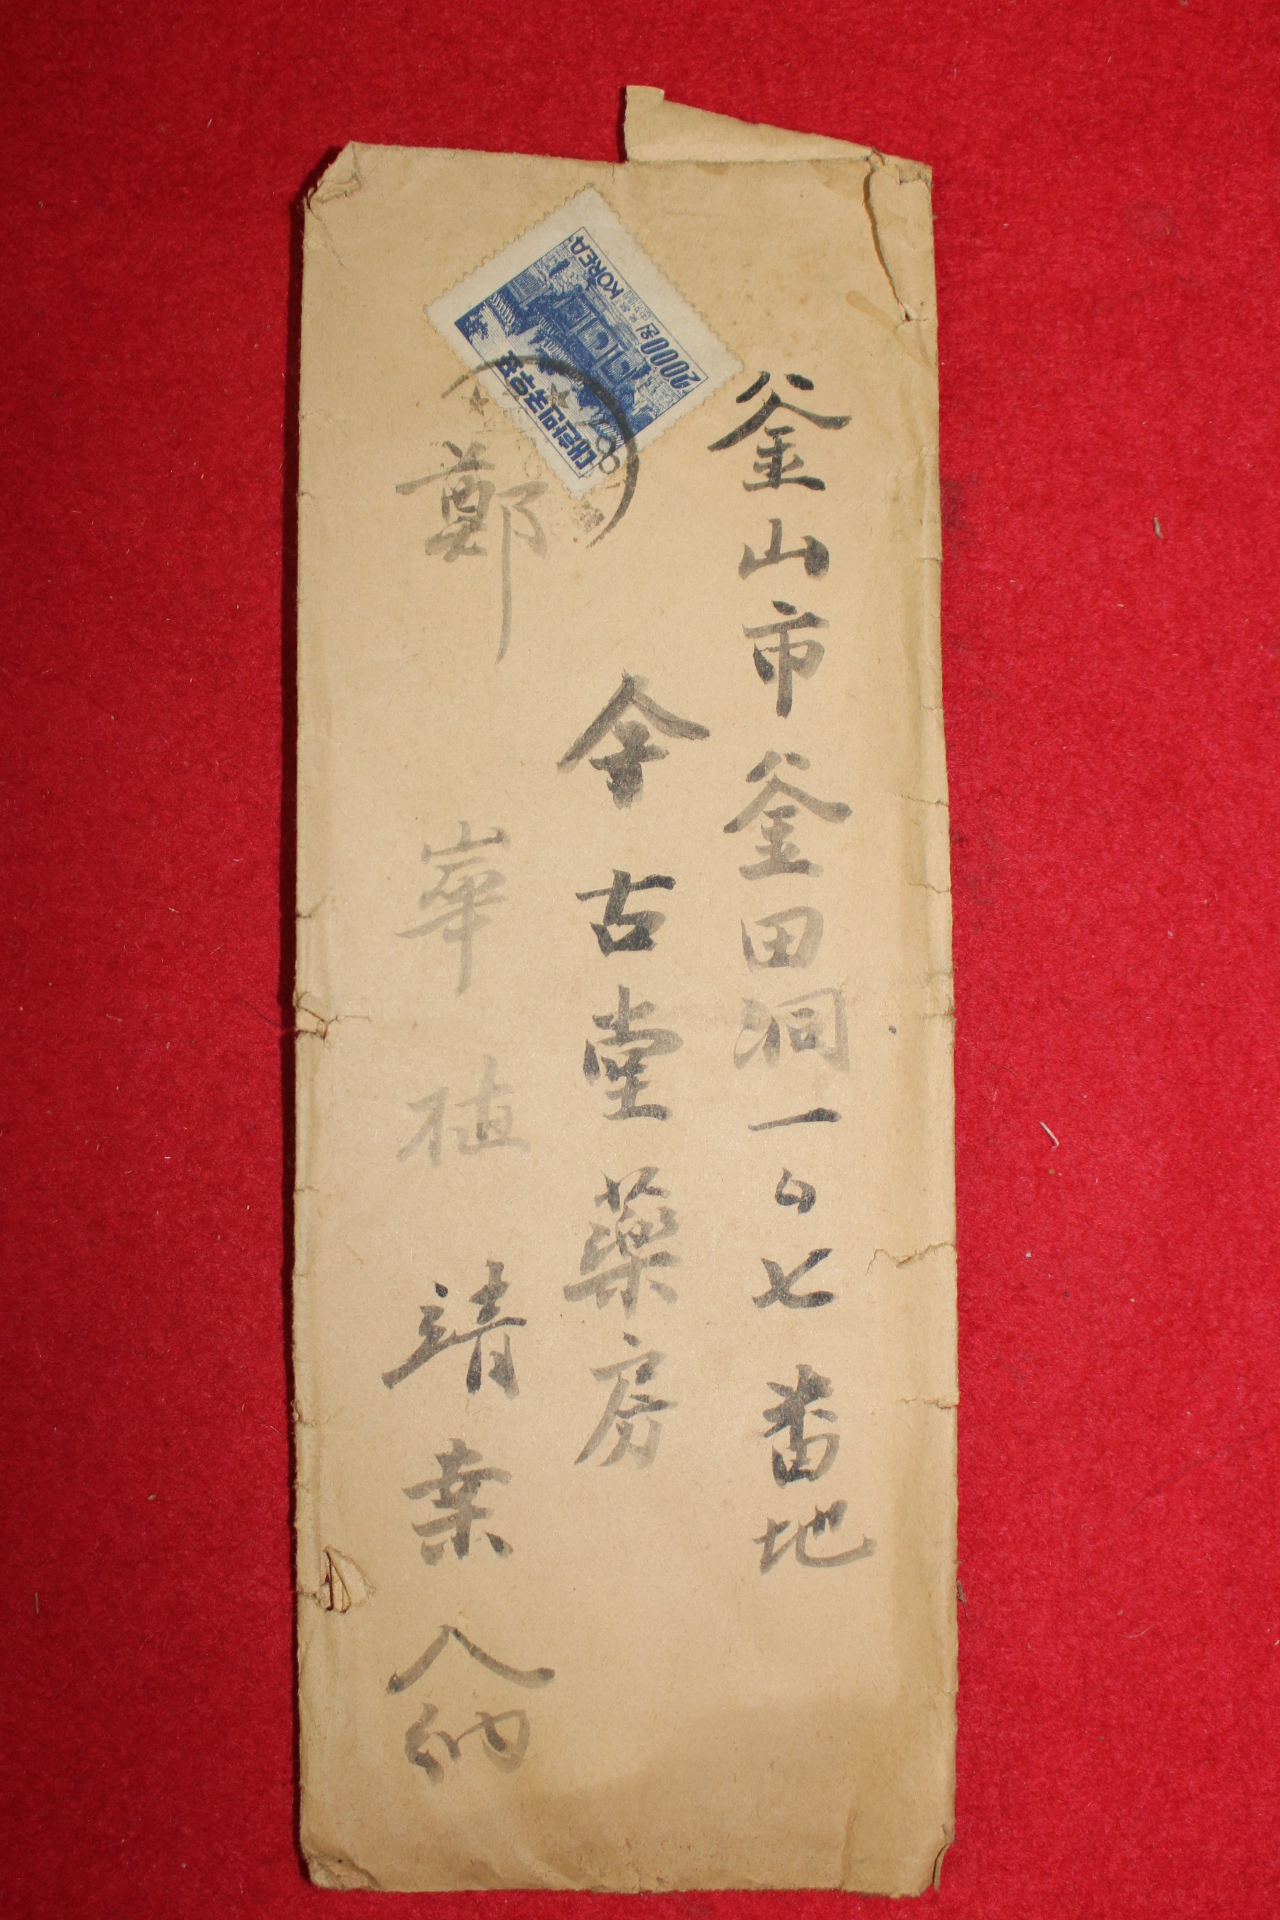 釜山市釜田洞一〇七番地
今古堂藥房
鄭崋植 靖案入納
대한민국우표
2000원
KOREA